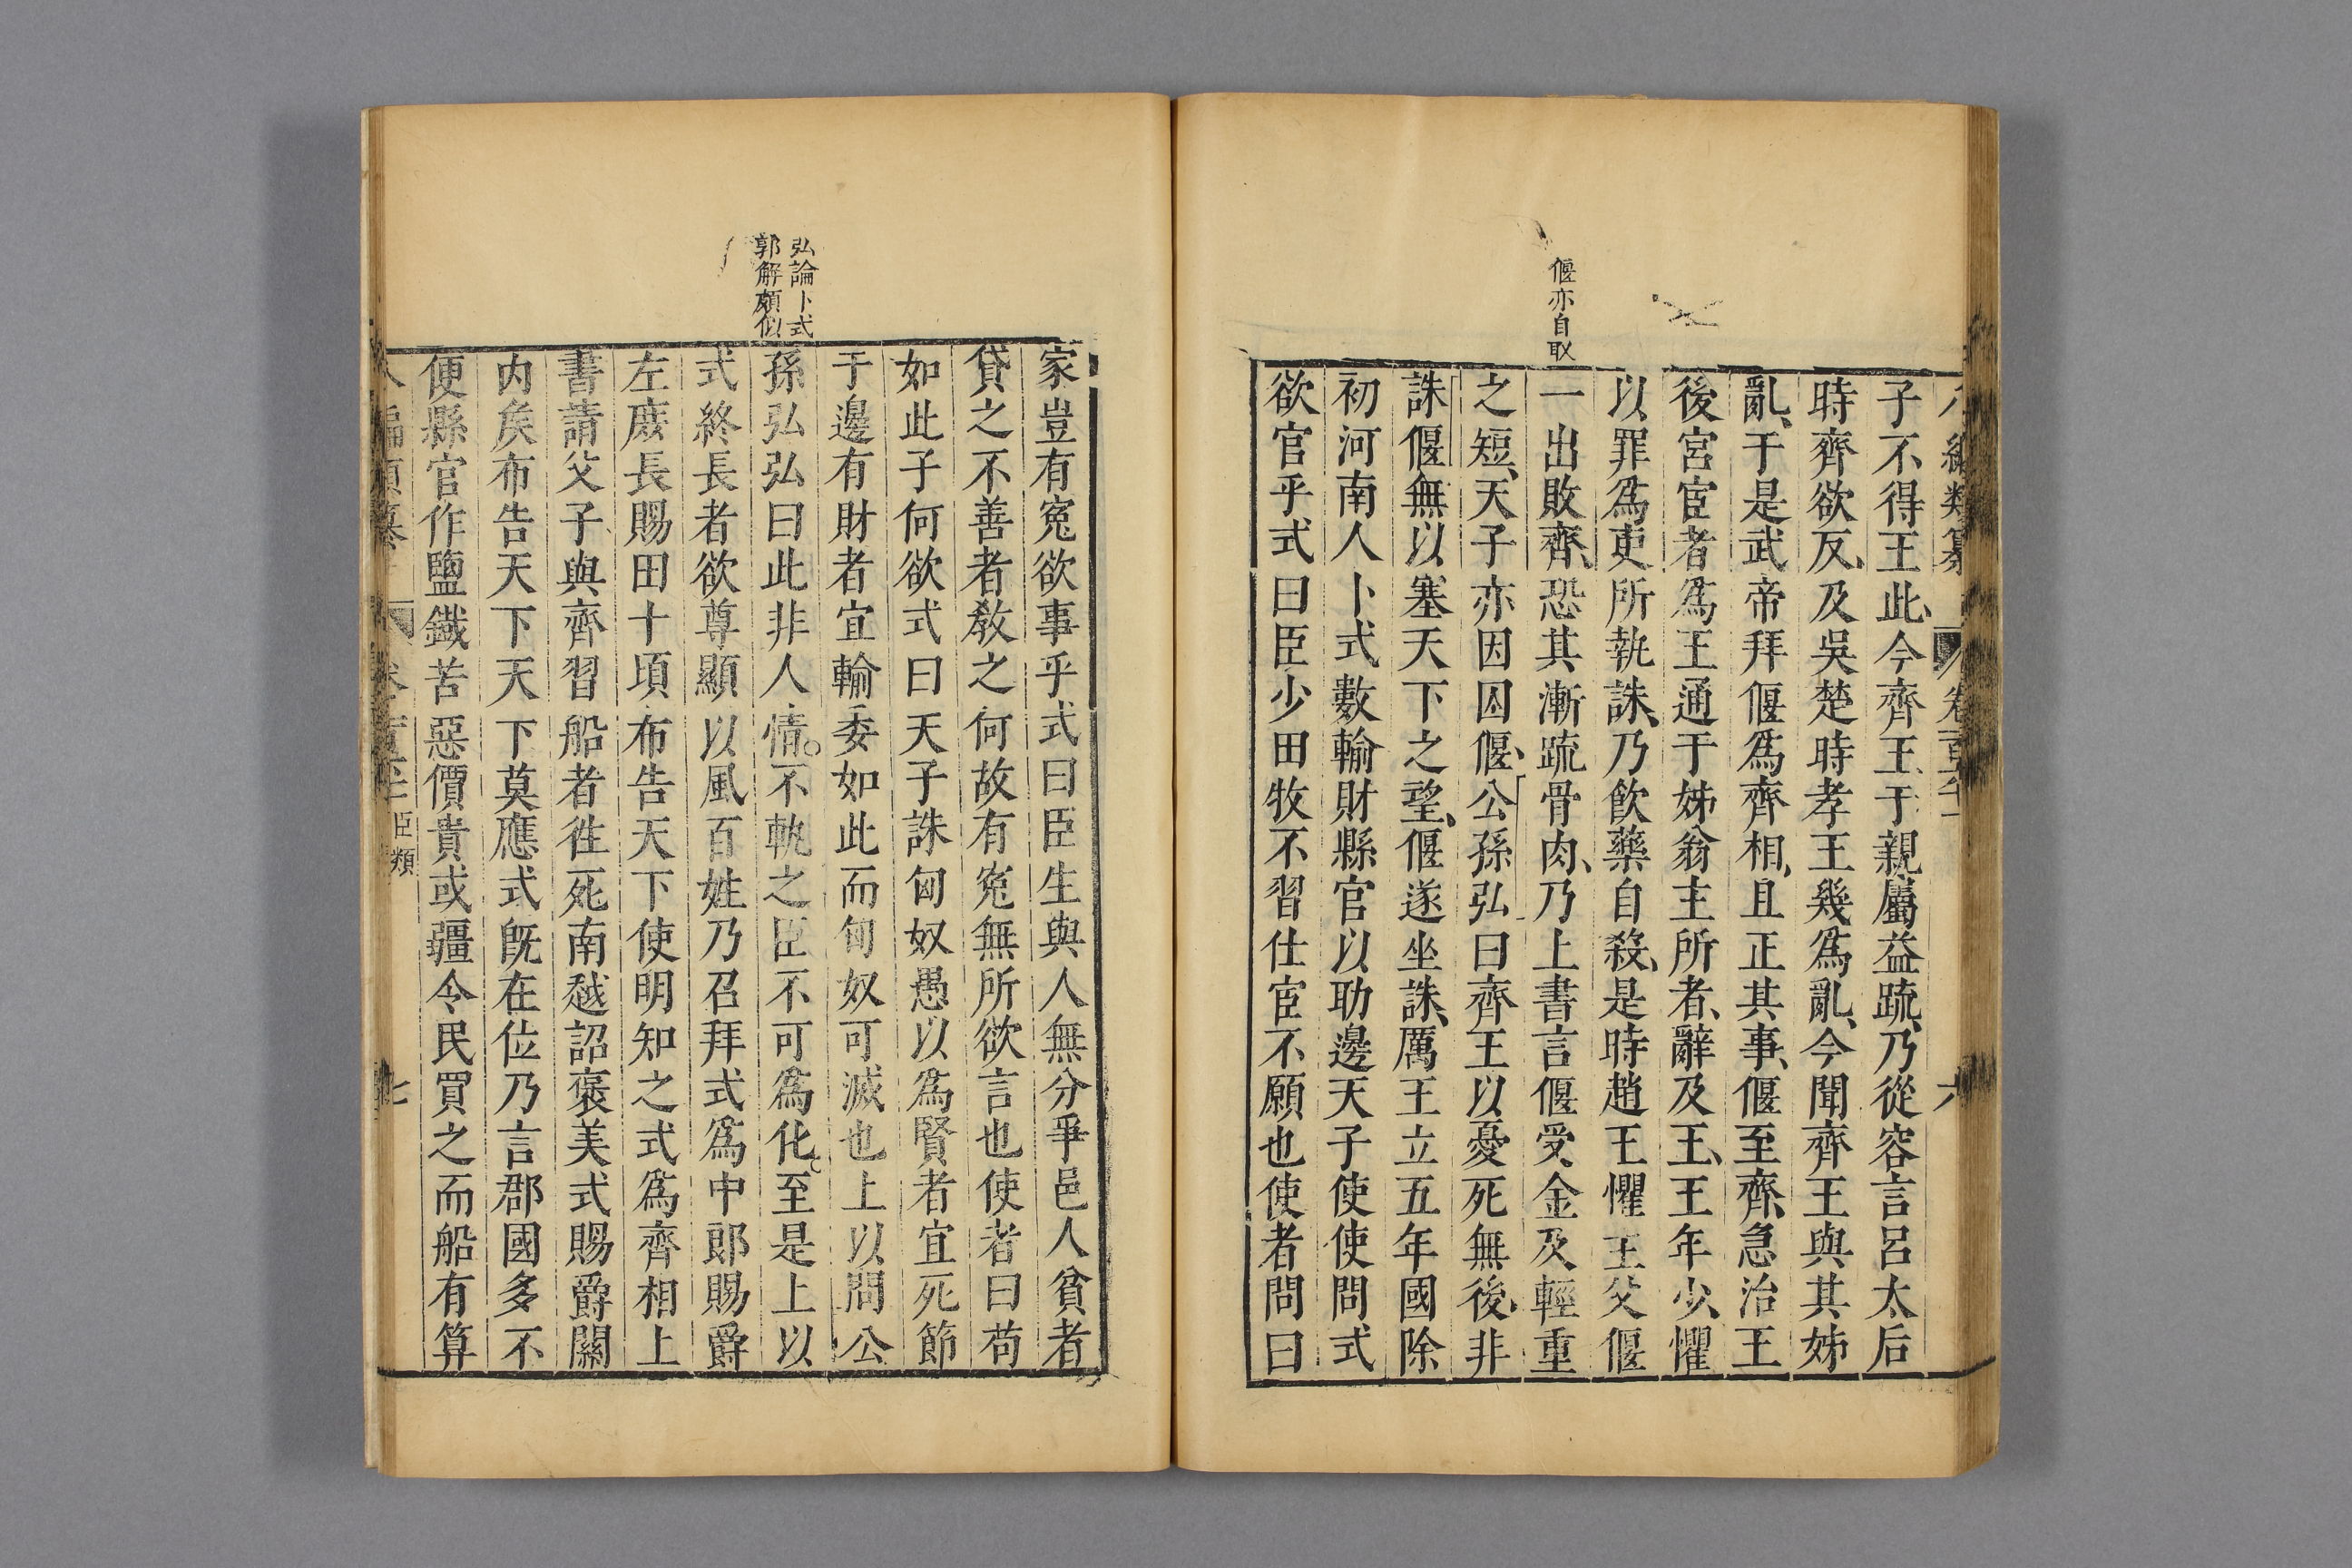 偃亦自取
子不得王此今齊王于親屬益疏乃從容言呂太后
時齊欲反及吳楚時孝王幾爲亂今聞齊王與其姊
亂于是武帝拜偃爲齊相且正其事偃至齊急治王
後宮宦者爲王通于姊翁主所者辭及王王年少懼
以罪爲吏所執誅乃飲藥自殺是時趙王懼主父偃
一出敗齊恐其漸疏骨肉乃上書言偃受金及輕重
之短天子亦因囚偃公孫弘曰齊王以憂死無後非
誅偃無以塞天下之望偃遂坐誅厲王立五年國除
初河南人卜式數輸財縣官以助邊天子使使問式
欲官乎式曰臣少田牧不習仕宦不願也使者問曰
弘論卜式
郭解頗似
家豈有冤欲事乎式曰臣生與人無分爭邑人貧者
貸之不善者教之何故有冤無所欲言也使者曰苟
如此子何欲式曰天子誅匈奴愚以爲賢者宜死節
于邊有財者宜輸委如此而匈奴可滅也上以問公
孫弘弘曰此非人情不軌之臣不可爲化至是上以
式終長者欲尊顯以風百姓乃召拜式爲中郎賜爵
左庶長賜田十頃布告天下使明知之式爲齊相上
書請父子與齊習船者徃死南越詔褒美式賜爵關
內矦布告天下天下莫應式既在位乃言郡國多不
便縣官作鹽鐵苦惡價貴或彊令民買之而船有算
臣類
七